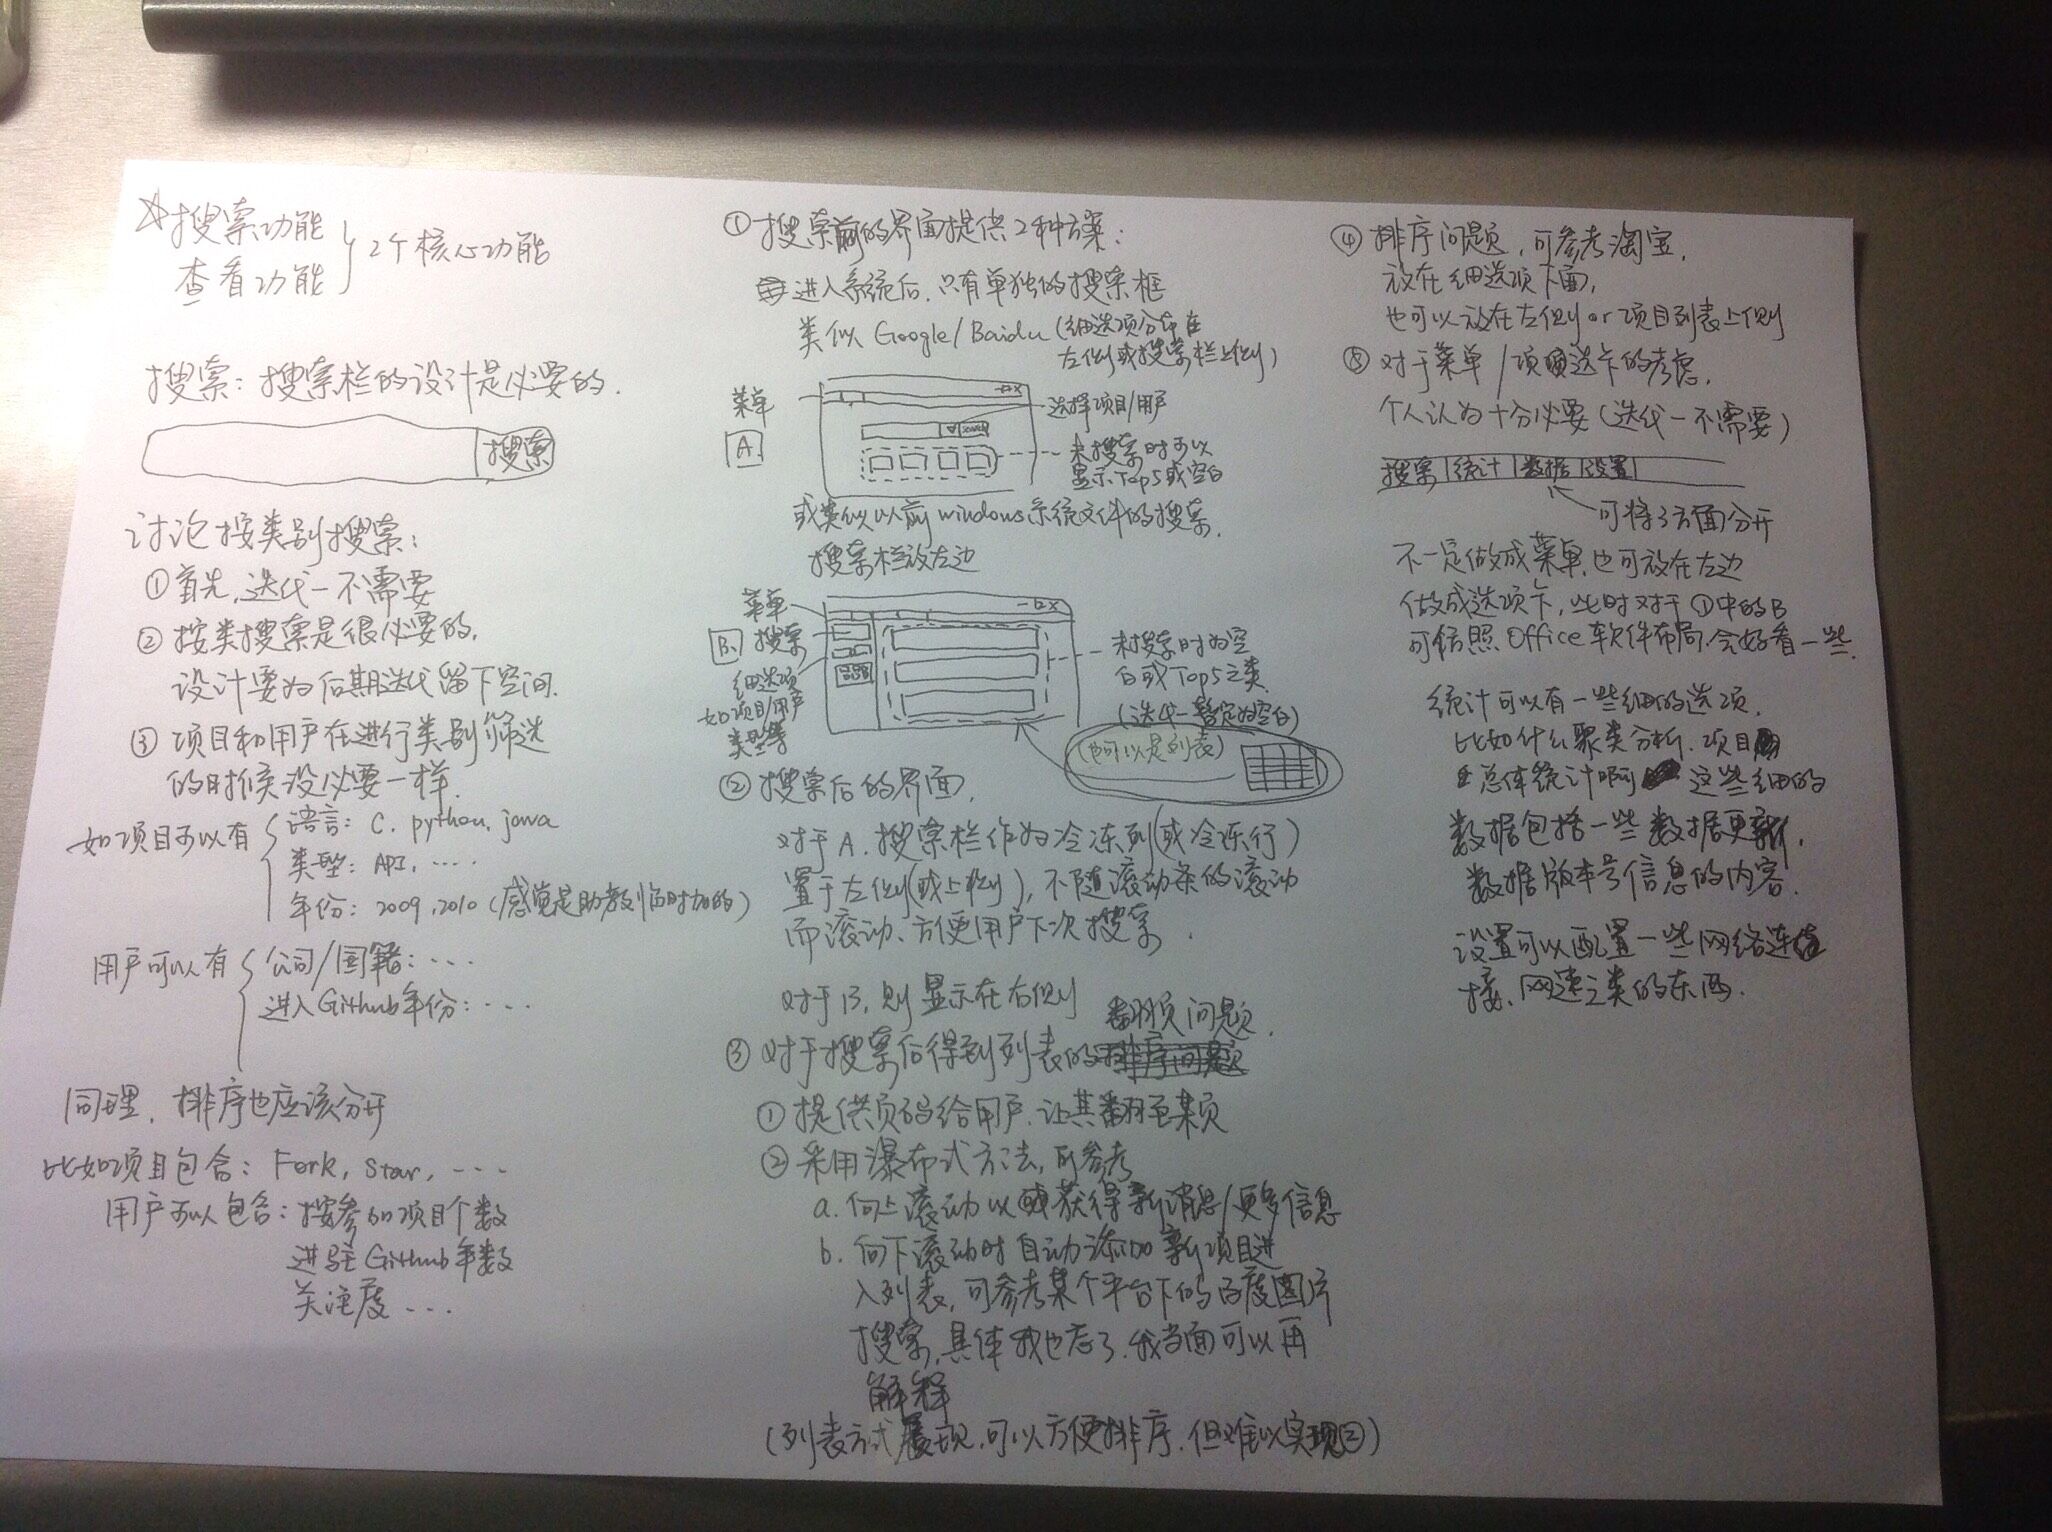 ☆搜索功能
查看功能
2个核心功能
搜索：搜索栏的设计是必要的.
搜索
讨论按类别搜索：
①首先,迭代一不需要
②按类搜索是很必要的,
设计要为后期迭代留下空间.
③项目和用户在进行类别筛选
的时候没必要一样.
如项目可以有
语言：C. python. java
类型：API, ....
年份：2009,2010 (感觉是助教临时加的)
用户可以有
公司/国籍：...
进入Github年份：....
同理, 排序也应该分开
比如项目包含：Fork, Star, ....
用户可以包含：按参加项目个数
进驻Github年数
关注度 ...
①搜索前的界面提供2种方案：
进入系统后,只有单独的搜索框
类似 Google/Baidu (细选项分布在
左侧或搜索栏上侧)
菜单
A.
选择项目/用户
search
未搜索时可以
显示Top5或空白
或类似以前windows系统文件的搜索.
搜索栏放左边
菜单
B. 搜索
细选项
如项目/用户
类型等
未搜索时为空
白或Top5之类
(迭代一暂定为空白)
(也可以是列表)
②搜索后的界面.
对于A.搜索栏作为冷冻列(或冷冻行)
置于左侧(或上侧), 不随滚动条的滚动
而滚动、方便用户下次搜索.
对于B, 则显示在右侧
翻页问题.
③对于搜索后得到列表的排序问题
①提供页码给用户,让其翻至某页
②采用瀑布式方法, 可参考
a. 向上滚动以获得新消息/更多信息
b. 向下滚动时自动添加新项目进
入列表, 可参考某个平台下的百度图片
搜索, 具体我也忘了.我当面可以再
解释
(列表方式展现,可以方便排序.但难以实现②)
④排序问题, 可参考淘宝,
放在细选项下面,
也可以放在左侧or项目列表上侧
⑤对于菜单/项选卡的考虑,
个人认为十分必要(迭代一不需要)
搜索|统计|数据|设置
可将3方面分开
不一定做成菜单,也可放在左边
做成选项卡, 此时对于①中的B
可仿照Office软件布局.会好看一些.
统计可以有一些细的选项.
比如什么聚类分析.项目
总体统计啊 这些细的
数据包括一些数据更新,
数据版本号信息的内容.
设置可以配置一些网络连
接、网速之类的东西.